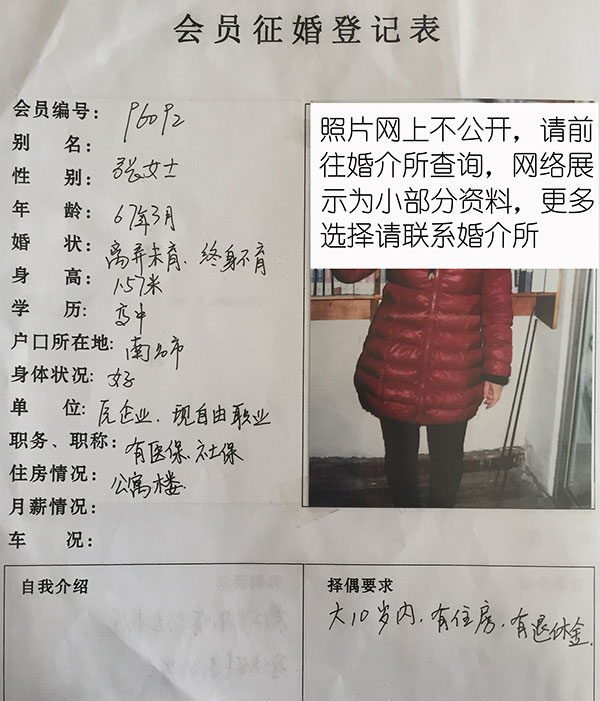 会员征婚登记表
会员编号: 96092
别 名: 张女士
性 别:
年 龄: 67年3月
婚 状: 离异未育、终身不育
身 高: 1.57米
学 历: 高中
户口所在地: 南昌市
身体状况: 好
单 位: 企业、现自由职业
职务、职称: 有医保.社保
住房情况: 公寓楼
月薪情况:
车 况:
照片网上不公开，请前
往婚介所查询，网络展
示为小部分资料，更多
选择请联系婚介所
自我介绍
择偶要求
大10岁内.有住房.有退休金.